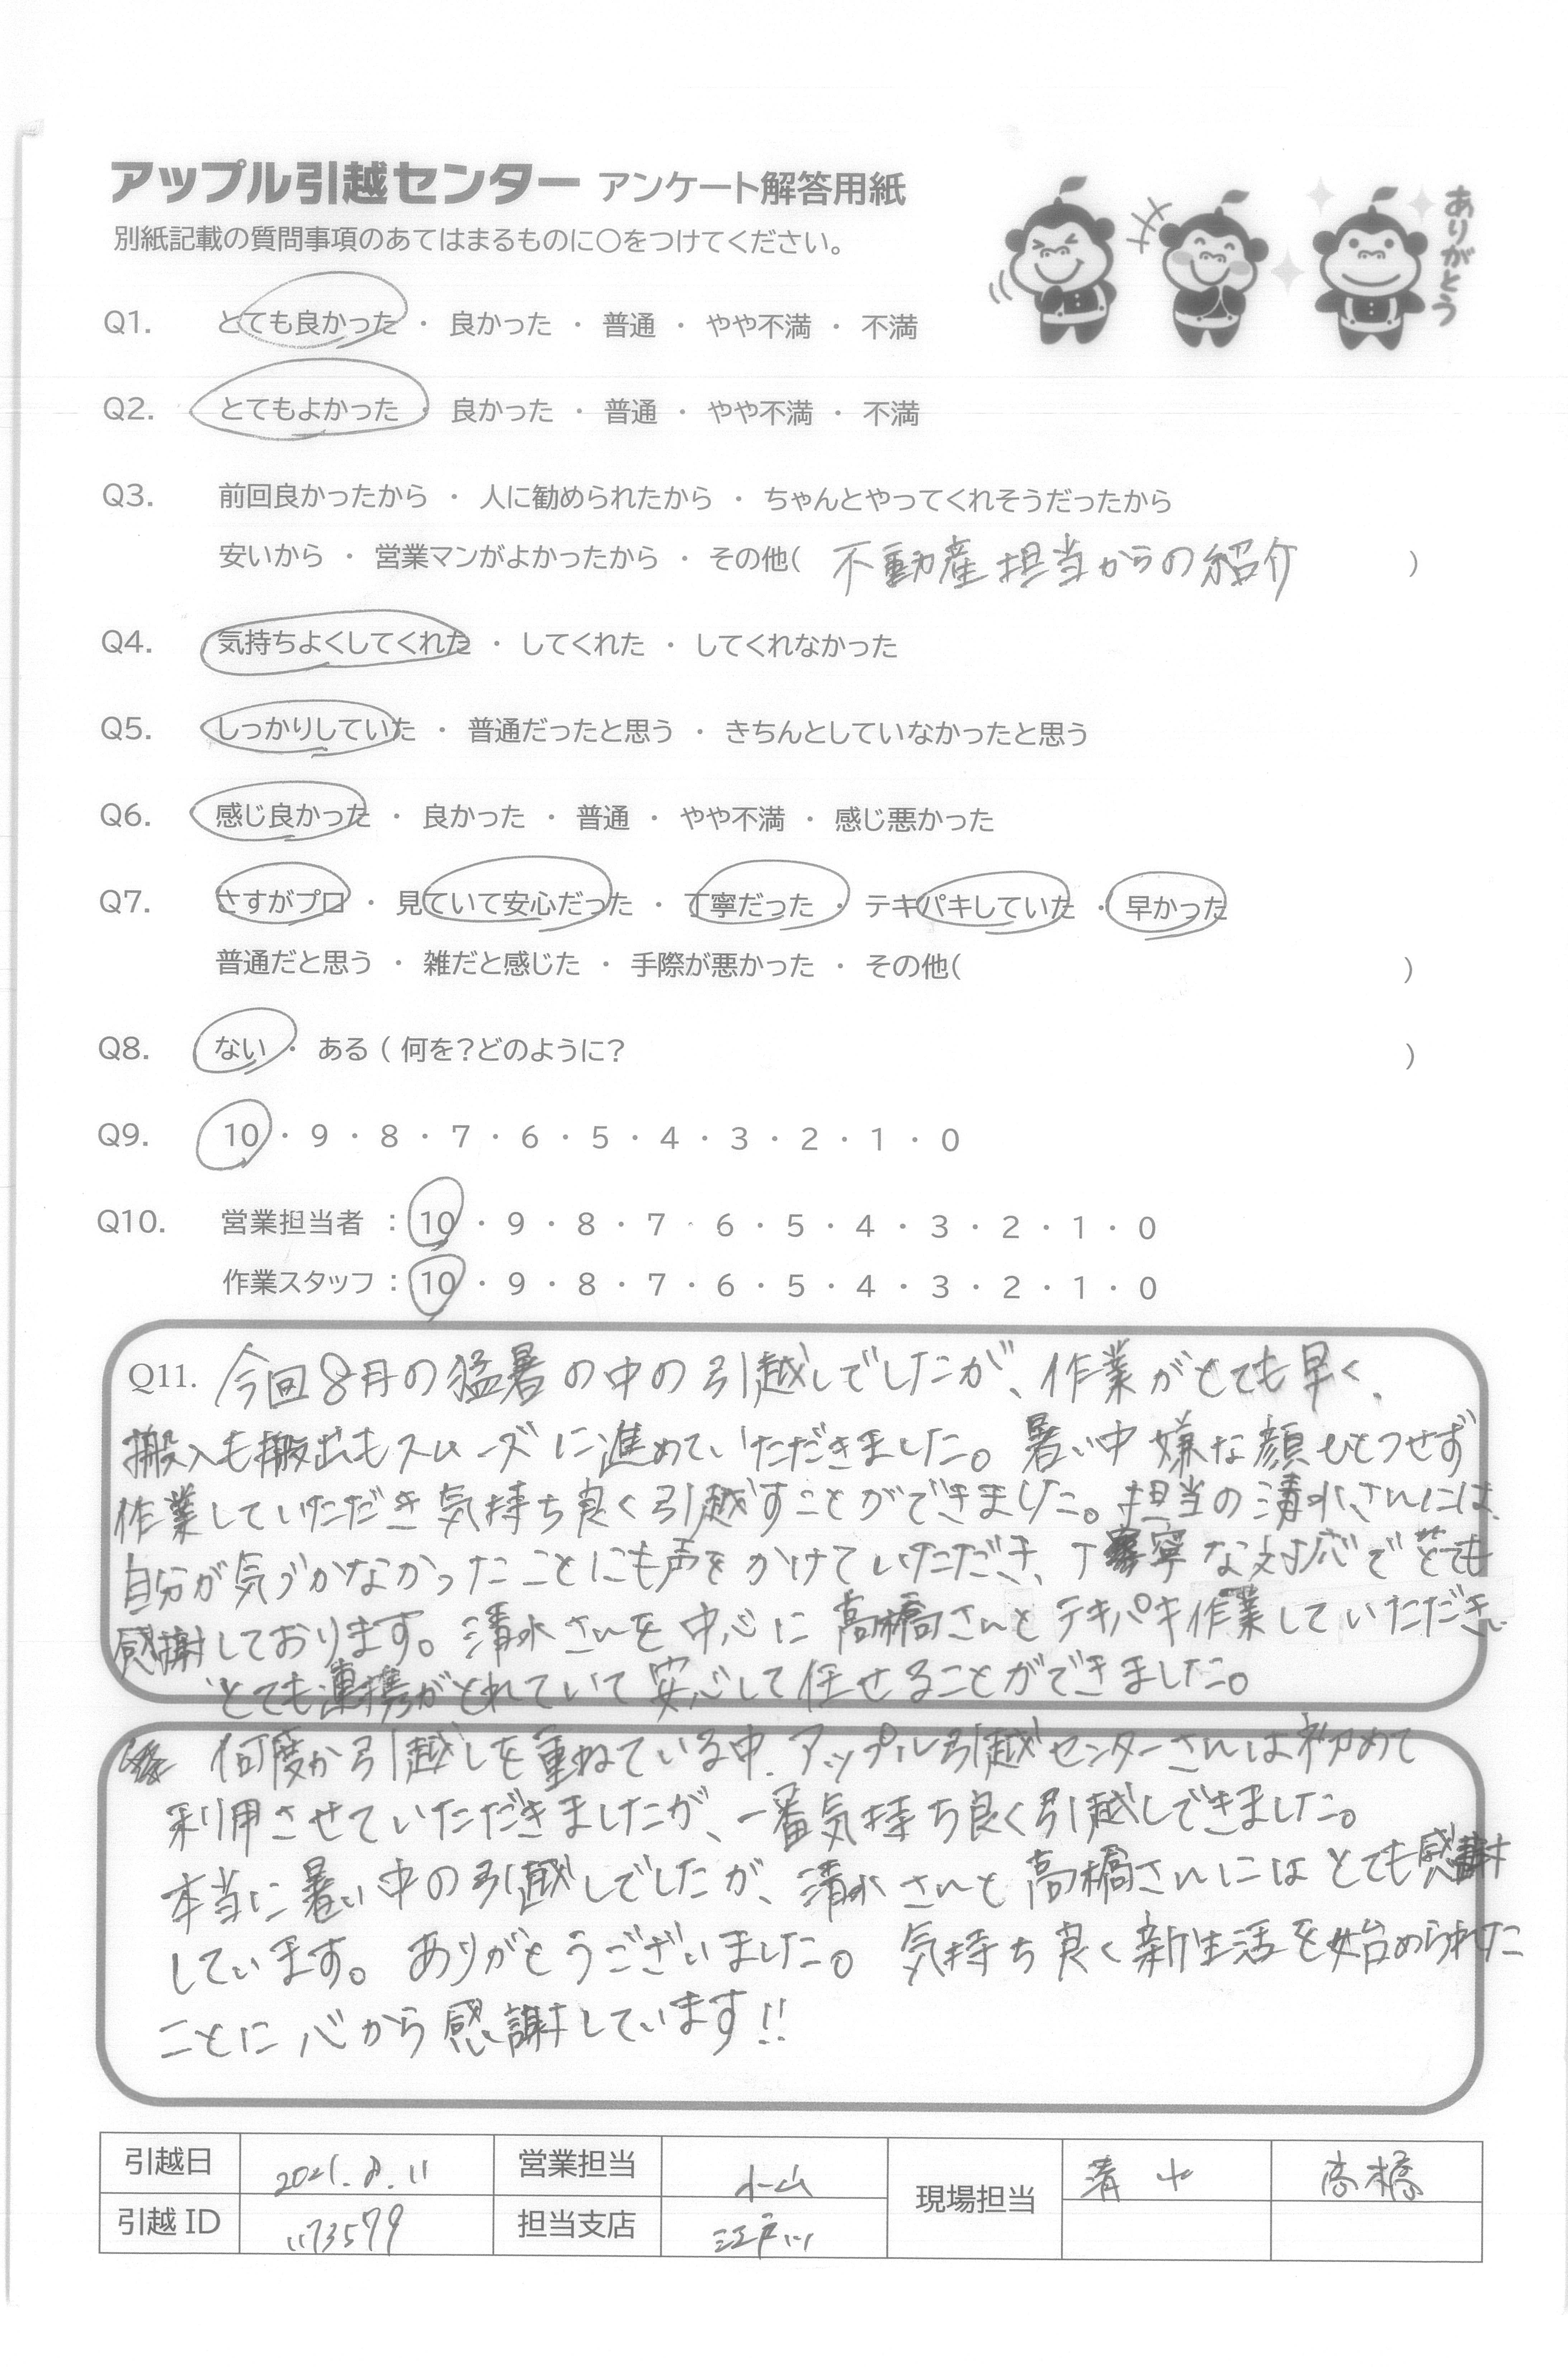 アップル引越センター アンケート解答用紙
別紙記載の質問事項のあてはまるものに○をつけてください。
ありがとう
Q1. とても良かった ・ 良かった ・ 普通 ・ やや不満 ・ 不満
Q2. とてもよかった ・ 良かった ・ 普通 ・ やや不満 ・ 不満
Q3. 前回良かったから ・ 人に勧められたから ・ ちゃんとやってくれそうだったから
安いから ・ 営業マンがよかったから ・ その他( 不動産担当からの紹介 )
Q4. 気持ちよくしてくれた ・ してくれた ・ してくれなかった
Q5. しっかりしていた ・ 普通だったと思う ・ きちんとしていなかったと思う
Q6. 感じ良かった ・ 良かった ・ 普通 ・ やや不満 ・ 感じ悪かった
Q7. さすがプロ ・ 見ていて安心だった ・ 丁寧だった ・ テキパキしていた ・ 早かった
普通だと思う ・ 雑だと感じた ・ 手際が悪かった ・ その他( )
Q8. ない ・ ある ( 何を?どのように? )
Q9. 10 ・ 9 ・ 8 ・ 7 ・ 6 ・ 5 ・ 4 ・ 3 ・ 2 ・ 1 ・ 0
Q10. 営業担当者 : 10 ・ 9 ・ 8 ・ 7 ・ 6 ・ 5 ・ 4 ・ 3 ・ 2 ・ 1 ・ 0
作業スタッフ : 10 ・ 9 ・ 8 ・ 7 ・ 6 ・ 5 ・ 4 ・ 3 ・ 2 ・ 1 ・ 0
Q11. 今回8月の猛暑の中の引越しでしたが、作業がとても早く、
搬入も搬出もスムーズに進めていただきました。暑い中嫌な顔ひとつせず
作業していただき気持ち良く引越すことができました。担当の清水さんには、
自分が気づかなかったことにも声をかけていただき、丁寧な対応でとても
感謝しております。清水さんを中心に高橋さんとテキパキ作業していただき、
とても連携がとれていて安心して任せることができました。
何度か引越しを重ねている中、アップル引越センターさんは初めて
利用させていただきましたが、一番気持ち良く引越しできました。
本当に暑い中の引越しでしたが、清水さんと高橋さんにはとても感謝
しています。ありがとうございました。気持ち良く新生活を始められた
ことに心から感謝しています!!
引越日 2021.8.11 営業担当 小山 現場担当 清水 高橋
引越ID 1173579 担当支店 江戸川